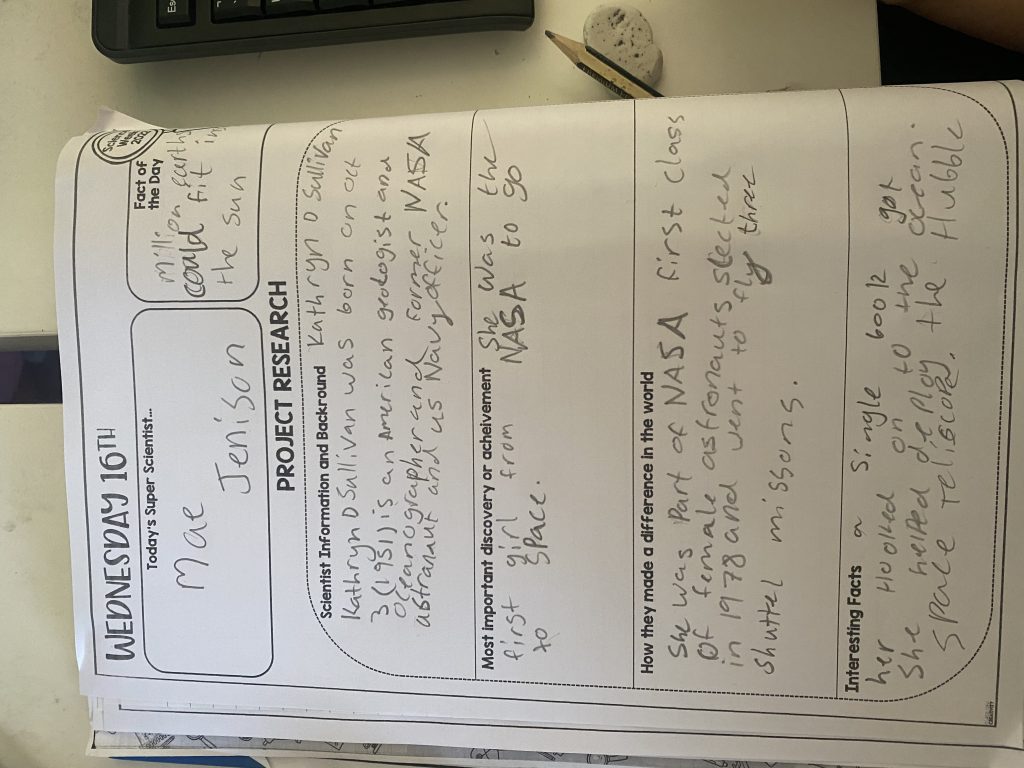 WEDNESDAY 16TH
Science Week 202
Today's Super Scientist...
Mae
Jenison
Fact of the Day
million Earths
could fit in
the sun
PROJECT RESEARCH
Scientist Information and Backround Kathryn D Sullivan
Kathryn D Sullivan was born on oct
3 (1951) is an American geologist and
Oceanographer and former NASA
astranaut and us Navy officer.
Most important discovery or acheivement She was the
first girl from NASA to go
to space.
How they made a difference in the world
She was part of NASA first class
Of female astronauts slected
in 1978 and went to fly three
shuttel missons.
Interesting Facts a single book got
her Hooked on to the ocean.
She helped deploy the Hubble
Space Teliscope.
Esc